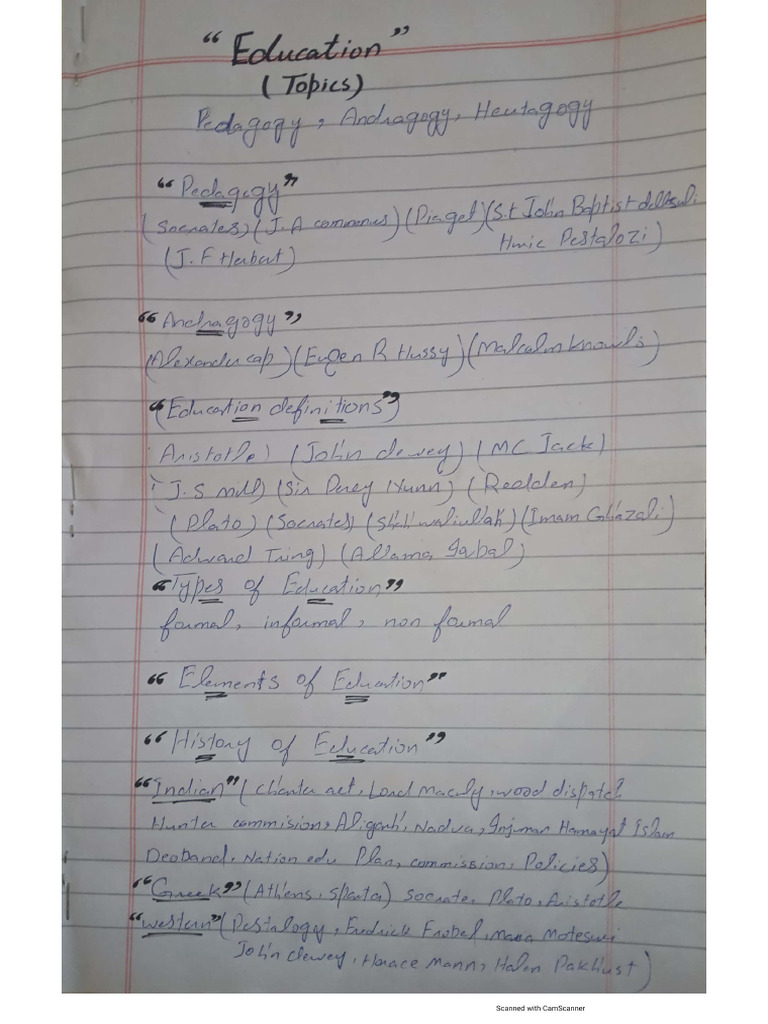 "Education"
(Topics)
Pedagogy, Andragogy, Heutagogy
"Pedagogy"
(Socrates) (J.A commenus) (Piaget) (S.t John Baptist
Hnric Pestalozi)
(J.F Herbert)
"Andragogy"
(Alexander cap) (Eugen R Hussy) (Malcalm Knowls)
"(Education definitions")
Aristotle) (John dewey) (MC Jack)
J.S mill) (Sir Percy Nunn) (Redden)
(Plato) (Socrates) (Shah waliullah) (Imam Ghazali)
(Adward Tring) (Allama Iqbal)
"Types of Education"
formal, informal, non formal
"Elements of Education"
"History of Education"
"Indian" (Charter act, Lord MacUly, wood dispatch
Hunter commision, Aligarh, Nadva, Injuman Hamayat Islam
Deoband, Nation edu Plan, commission, Policies)
"Greek" (Athens, Sparta) Socrate, Plato, Aristotle
"western" (Pestalogy, Fredrick Frobel, Maria Motesuri
John dewey, Horace Mann, Halen Pakhust)
Scanned with CamScanner